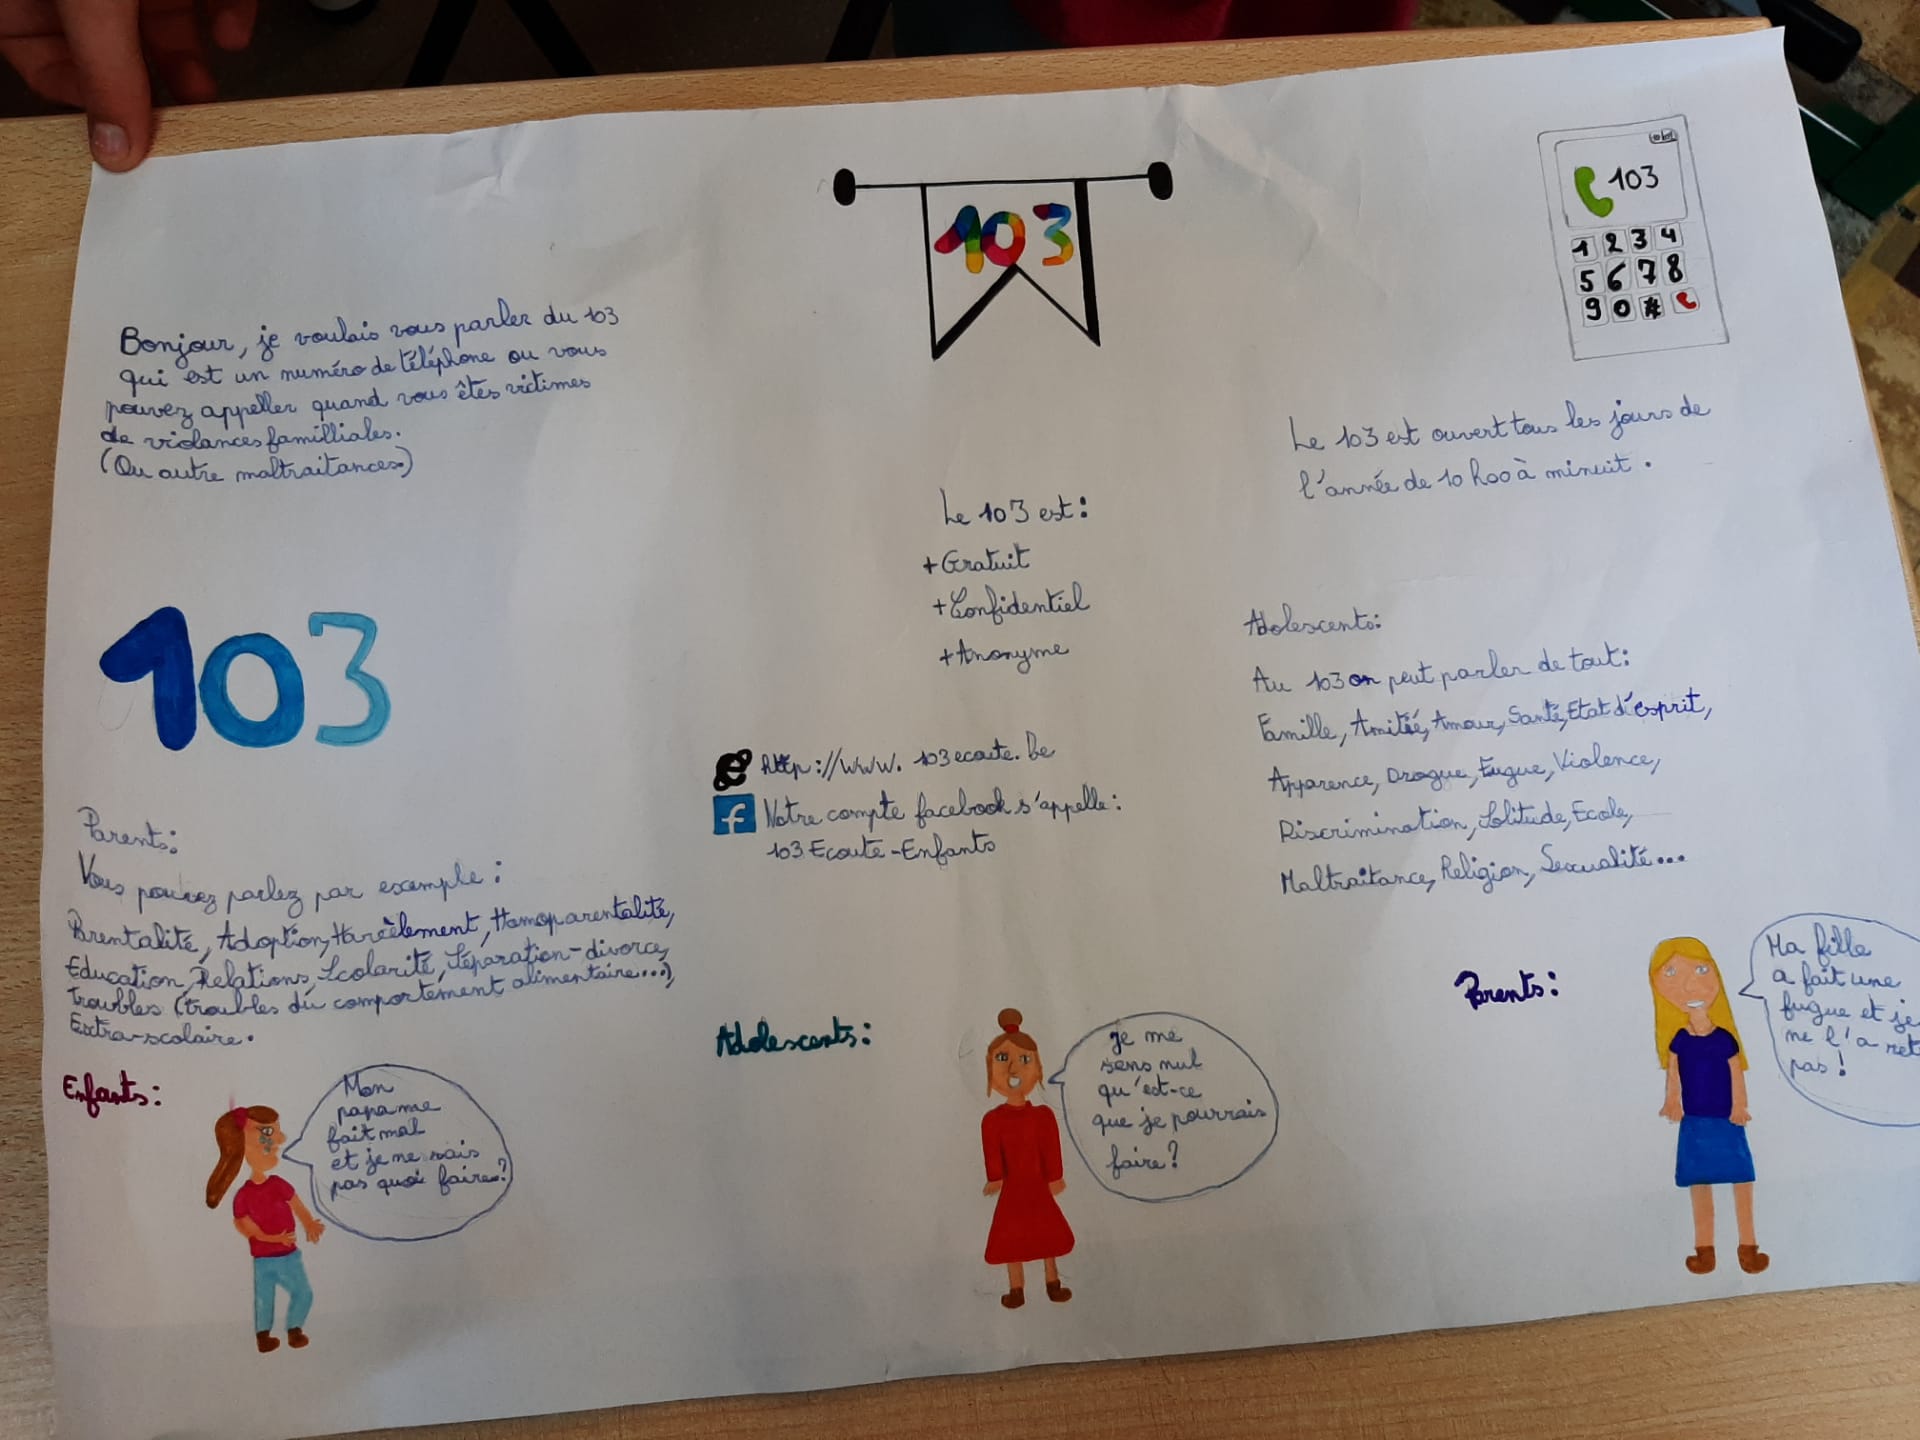 103
103
1 2 3 4
5 6 7 8
9 0 #
Bonjour, je voulais vous parler du 103
qui est un numéro de téléphone ou vous
pouvez appeller quand vous êtes victimes
de violances familliales.
(Ou autre maltraitances)
Le 103 est ouvert tous les jours de
l'année de 10 h00 à minuit.
Le 103 est:
+Gratuit
+Confidentiel
+Anonyme
103
http://www.103ecoute.be
f Notre compte facebook s'appelle:
103 Ecoute-Enfants
Adolescents:
Au 103 on peut parler de tout:
Famille, Amitié, Amour, Santé, Etat d'esprit,
Apparence, Drogue, Fugue, Violence,
Discrimination, Solitude, Ecole,
Maltraitance, Religion, Sexualité...
Parents:
Vous pouvez parlez par exemple:
Parentalité, Adoption, Harcèlement, Homoparentalité,
Education, Relations, Scolarité, Séparation-divorce,
troubles (troubles du comportement alimentaire...),
Extra-scolaire.
Enfants:
Mon
papa me
fait mal
et je ne sais
pas quoi faire?
Adolescents:
je me
sens nul
qu'est-ce
que je pourrais
faire?
Parents:
Ma fille
a fait une
fugue et je
ne l'a ret
pas!